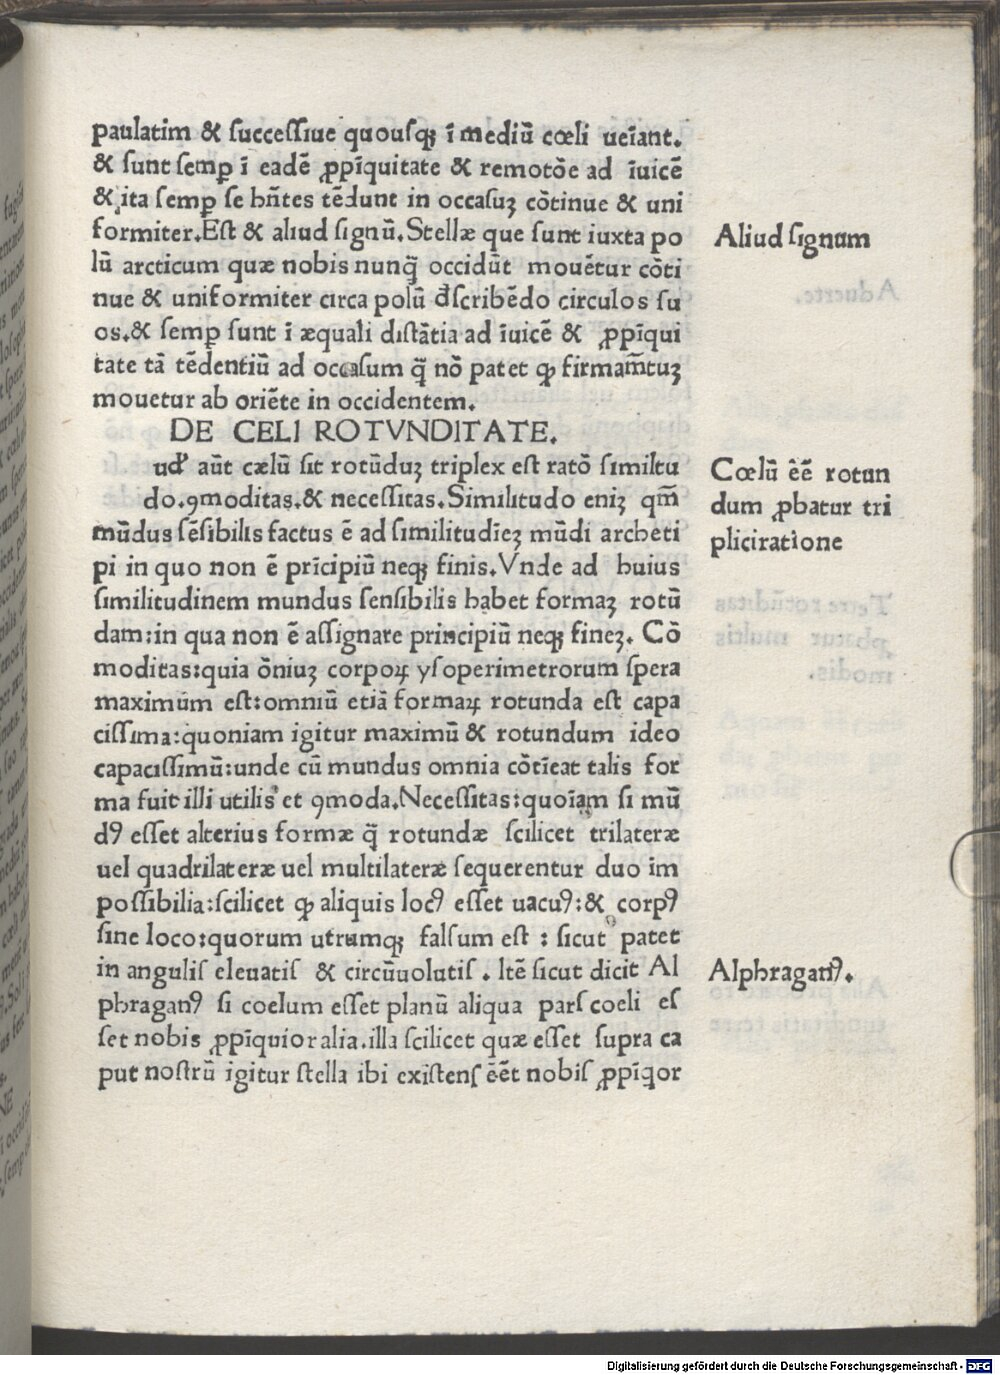 paulatim & ſucceſſiue quouſqꝫ ī mediū cœli ueīant.
& ſunt ſemꝑ ī eadē ꝓpīquitate & remotōe ad īuicē
& ita ſemꝑ ſe hn̄tes tēdunt in occaſuꝫ cōtinue & uni
formiter. Eſt & aliud ſignū. Stellæ que ſunt iuxta po
lū arcticum quæ nobis nunq̄ occidūt mouētur cōti
nue & uniformiter circa polū d̄ſcribēdo circulos ſu
os. & ſemꝑ ſunt ī æquali diſtātia ad īuicē & ꝓpīqui
tate tā tēdentiū ad occaſum q̄ nō patet ꝙ firmam̄tuꝫ
mouetur ab oriēte in occidentem.
Aliud ſignum
DE CELI ROTVNDITATE.
ud' aūt cælū ſit rotūduꝫ triplex eſt ratō ſimilitu
do. ꝯmoditas. & neceſſitas. Similitudo eniꝫ qm̄
mūdus ſēſibilis factus ē ad ſimilitudīeꝫ mūdi archeti
pi in quo non ē prīcipiū neqꝫ finis. Vnde ad huius
ſimilitudinem mundus ſenſibilis habet formaꝫ rotū
dam: in qua non ē aſſignare principiū neqꝫ fineꝫ. Cō
moditas: quia ōniuꝫ corpoꝝ yſoperimetrorum ſpera
maximum eſt: omniū etiā formaꝝ rotunda eſt capa
ciſſima: quoniam igitur maximū & rotundum ideo
capaciſſimū: unde cū mundus omnia cōtīeat talis for
ma fuit illi utilis et ꝯmoda. Neceſſitas: quoīam ſi mū
dꝰ eſſet alterius formæ q̄ rotundæ ſcilicet trilateræ
uel quadrilateræ uel multilateræ ſequerentur duo im
poſſibilia: ſcilicet ꝙ aliquis locꝰ eſſet uacuꝰ: & corpꝰ
ſine loco: quorum utrumqꝫ falſum eſt : ſicut patet
in anguliſ eleuatiſ & circūuolutiſ . Itē ſicut dicit Al
phraganꝰ ſi coelum eſſet planū aliqua parſ coeli eſ
ſet nobis ꝓpīquior alia. illa ſcilicet quæ eſſet ſupra ca
put noſtrū igitur ſtella ibi exiſtenſ ēēt nobiſ ꝓpīqor
Cœlū ēē rotun
dum ꝓbatur tri
plici ratione
Alphraganꝰ.
Digitalisierung gefördert durch die Deutsche Forschungsgemeinschaft - DFG